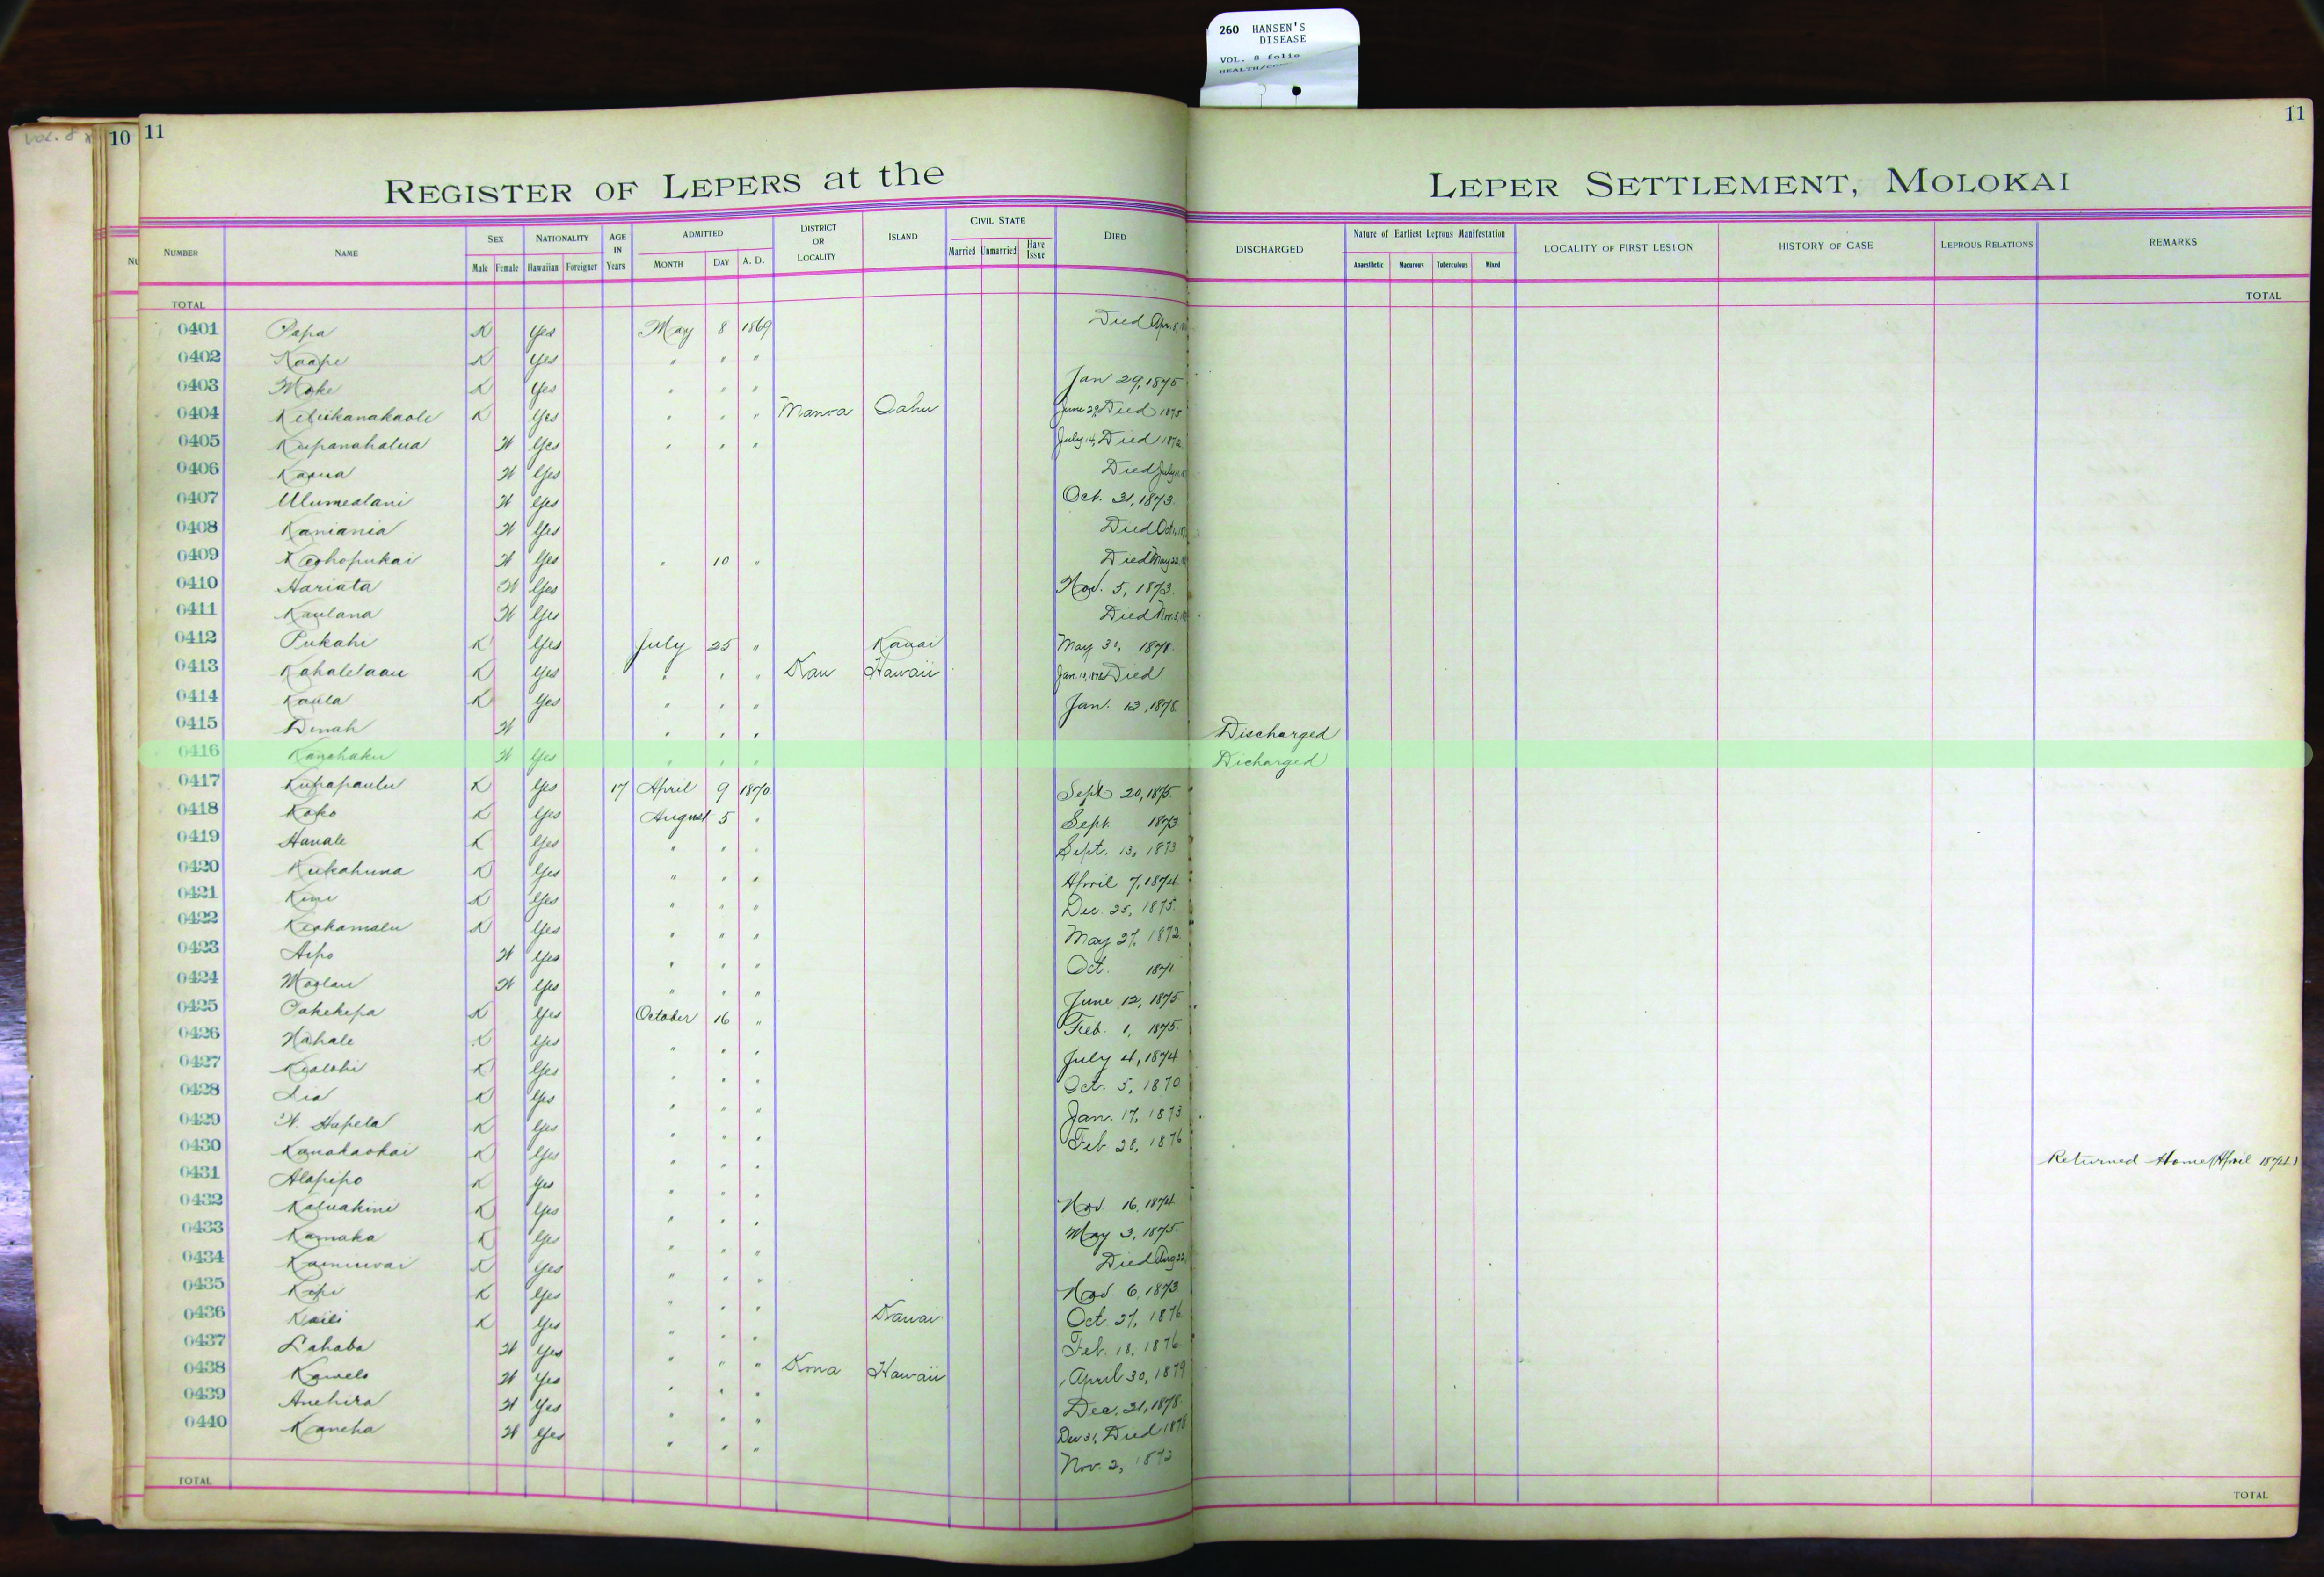 260 HANSEN'S
DISEASE
VOL. 8 folio
10
11
11
REGISTER OF LEPERS at the
LEPER SETTLEMENT, MOLOKAI
NUMBER NAME SEX NATIONALITY AGE IN Years ADMITTED DISTRICT OR LOCALITY ISLAND CIVIL STATE DIED DISCHARGED Nature of Earliest Leprous Manifestation LOCALITY OF FIRST LESION HISTORY OF CASE LEPROUS RELATIONS REMARKS
Male Female Hawaiian Foreigner MONTH DAY A. D. Married Unmarried Have Issue Anaesthetic Macurous Tuberculous Mixed
TOTAL TOTAL
0401 Papa K Yes May 8 1869 Died Apr. 8,
0402 Kaape K Yes " " "
0403 Moke K Yes " " " Jan 29, 1875
0404 Keliikanakaole K Yes " " " Manoa Oahu June 29, Died 1875
0405 Kupanahalua W Yes " " " July 14, Died 1872
0406 Kaoua W Yes Died July
0407 Ulumealani W Yes Oct. 31, 1873.
0408 Kaniania W Yes Died Oct
0409 Keohopukai W Yes " 10 " Died May 22,
0410 Hariata W Yes Nov. 5, 1873.
0411 Kaulana W Yes Died Nov. 3,
0412 Pukahi K Yes July 25 " Kauai May 31, 1871.
0413 Kahalelaau K Yes " " " Kau Hawaii Jan. Died
0414 Kaula K Yes " " " Jan. 12, 1878.
0415 Dinah W " " " Discharged
0416 Kanohaku W Yes " " " Dicharged
0417 Kupapaulu K Yes 17 April 9 1870 Sept 20, 1875.
0418 Koko K Yes August 5 " Sept. 1873
0419 Hanale K Yes " " " Sept. 13, 1873
0420 Kukahuna K Yes " " " April 7, 1874
0421 Kini K Yes " " " Dec. 25, 1875.
0422 Keohamalu K Yes " " " May 27, 1872.
0423 Aipo W Yes " " " Oct. 1871
0424 Moolau W Yes " " " June 12, 1875
0425 Pakekepa K Yes October 16 " Feb. 1, 1875.
0426 Nahale K Yes " " " July 4, 1874
0427 Kealohi K Yes " " " Oct. 5, 1870
0428 Lia K Yes " " " Jan. 17, 1873
0429 W. Hapela K Yes " " " Feb 28, 1876
0430 Kanakaokai K Yes " " " Returned Home (April 1874.)
0431 Alapipo K Yes " " " Nov 16, 1874
0432 Kaluakini K Yes " " " May 3, 1875.
0433 Kamaka K Yes " " " Died Aug 22,
0434 Kainuwai K Yes " " " Nov. 6, 1873
0435 Kopi K Yes " " " Oct. 27, 1876
0436 Kaili K Yes " " " Kauai Feb. 18, 1876
0437 Lahaba W Yes " " " Kona Hawaii April 30, 1879
0438 Kawelo W Yes " " " Dec. 31, 1878.
0439 Anehira W Yes " " " Dec 31, Died 1878
0440 Kaneha W Yes " " " Nov. 2, 1872
TOTAL TOTAL